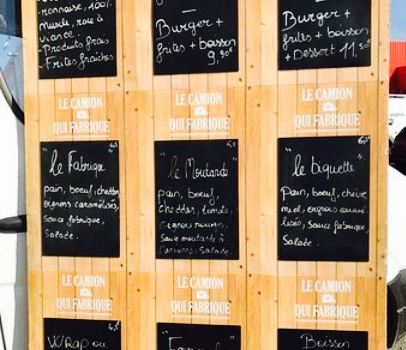 ronnaise, 100%
Muscle, race à
viande.
- Produits frais
- Frites fraîches
Burger +
frites + boisson
9,90€
Burger +
frites + boisson
+ Dessert 11,50
LE CAMION
QUI FABRIQUE
LE CAMION
QUI FABRIQUE
LE CAMION
QUI FABRIQUE
"le Fabrique"
pain, boeuf, cheddar,
oignons caramélisés,
sauce fabrique,
Salade.
"le Moutarde"
pain, boeuf,
cheddar, tomate,
oignons
sauce moutarde à
l'ancienne, Salade.
"le biquette"
pain, boeuf, chèvre
miel, oignons caramé-
lisés, Sauce fabrique,
Salade.
LE CAMION
QUI FABRIQUE
LE CAMION
QUI FABRIQUE
LE CAMION
QUI FABRIQUE
Wrap ou
Boisson